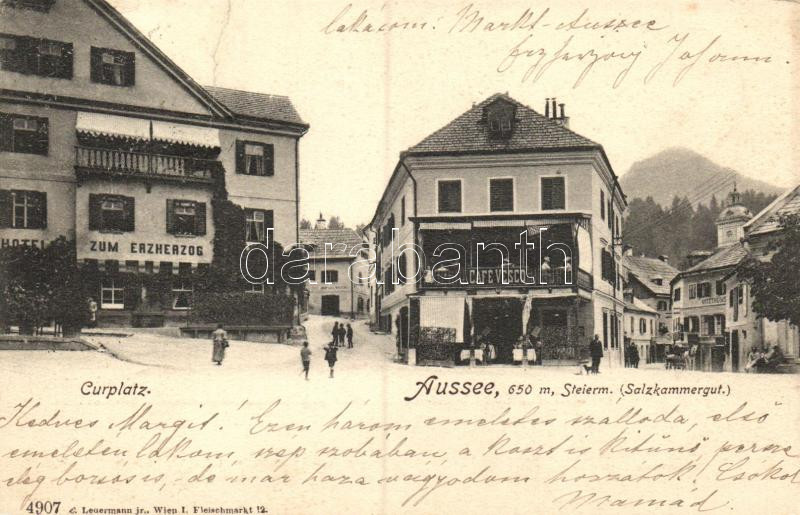 lakácom: Markt-Aussee
Erzherzog Johann.
HOTEL
ZUM ERZHERZOG
CAFÉ VESCO
darabanth
Curplatz.
Aussee, 650 m, Steierm. (Salzkammergut.)
Kedves Margit! Ezen három emeletes szálloda, első
emeleten lakom szép szobában a koszt is kitünő, persze
elég borsos is, de már haza vágyodom hozzátok! Csókol
Mamád
4907 C. Ledermann jr., Wien I. Fleischmarkt 12.